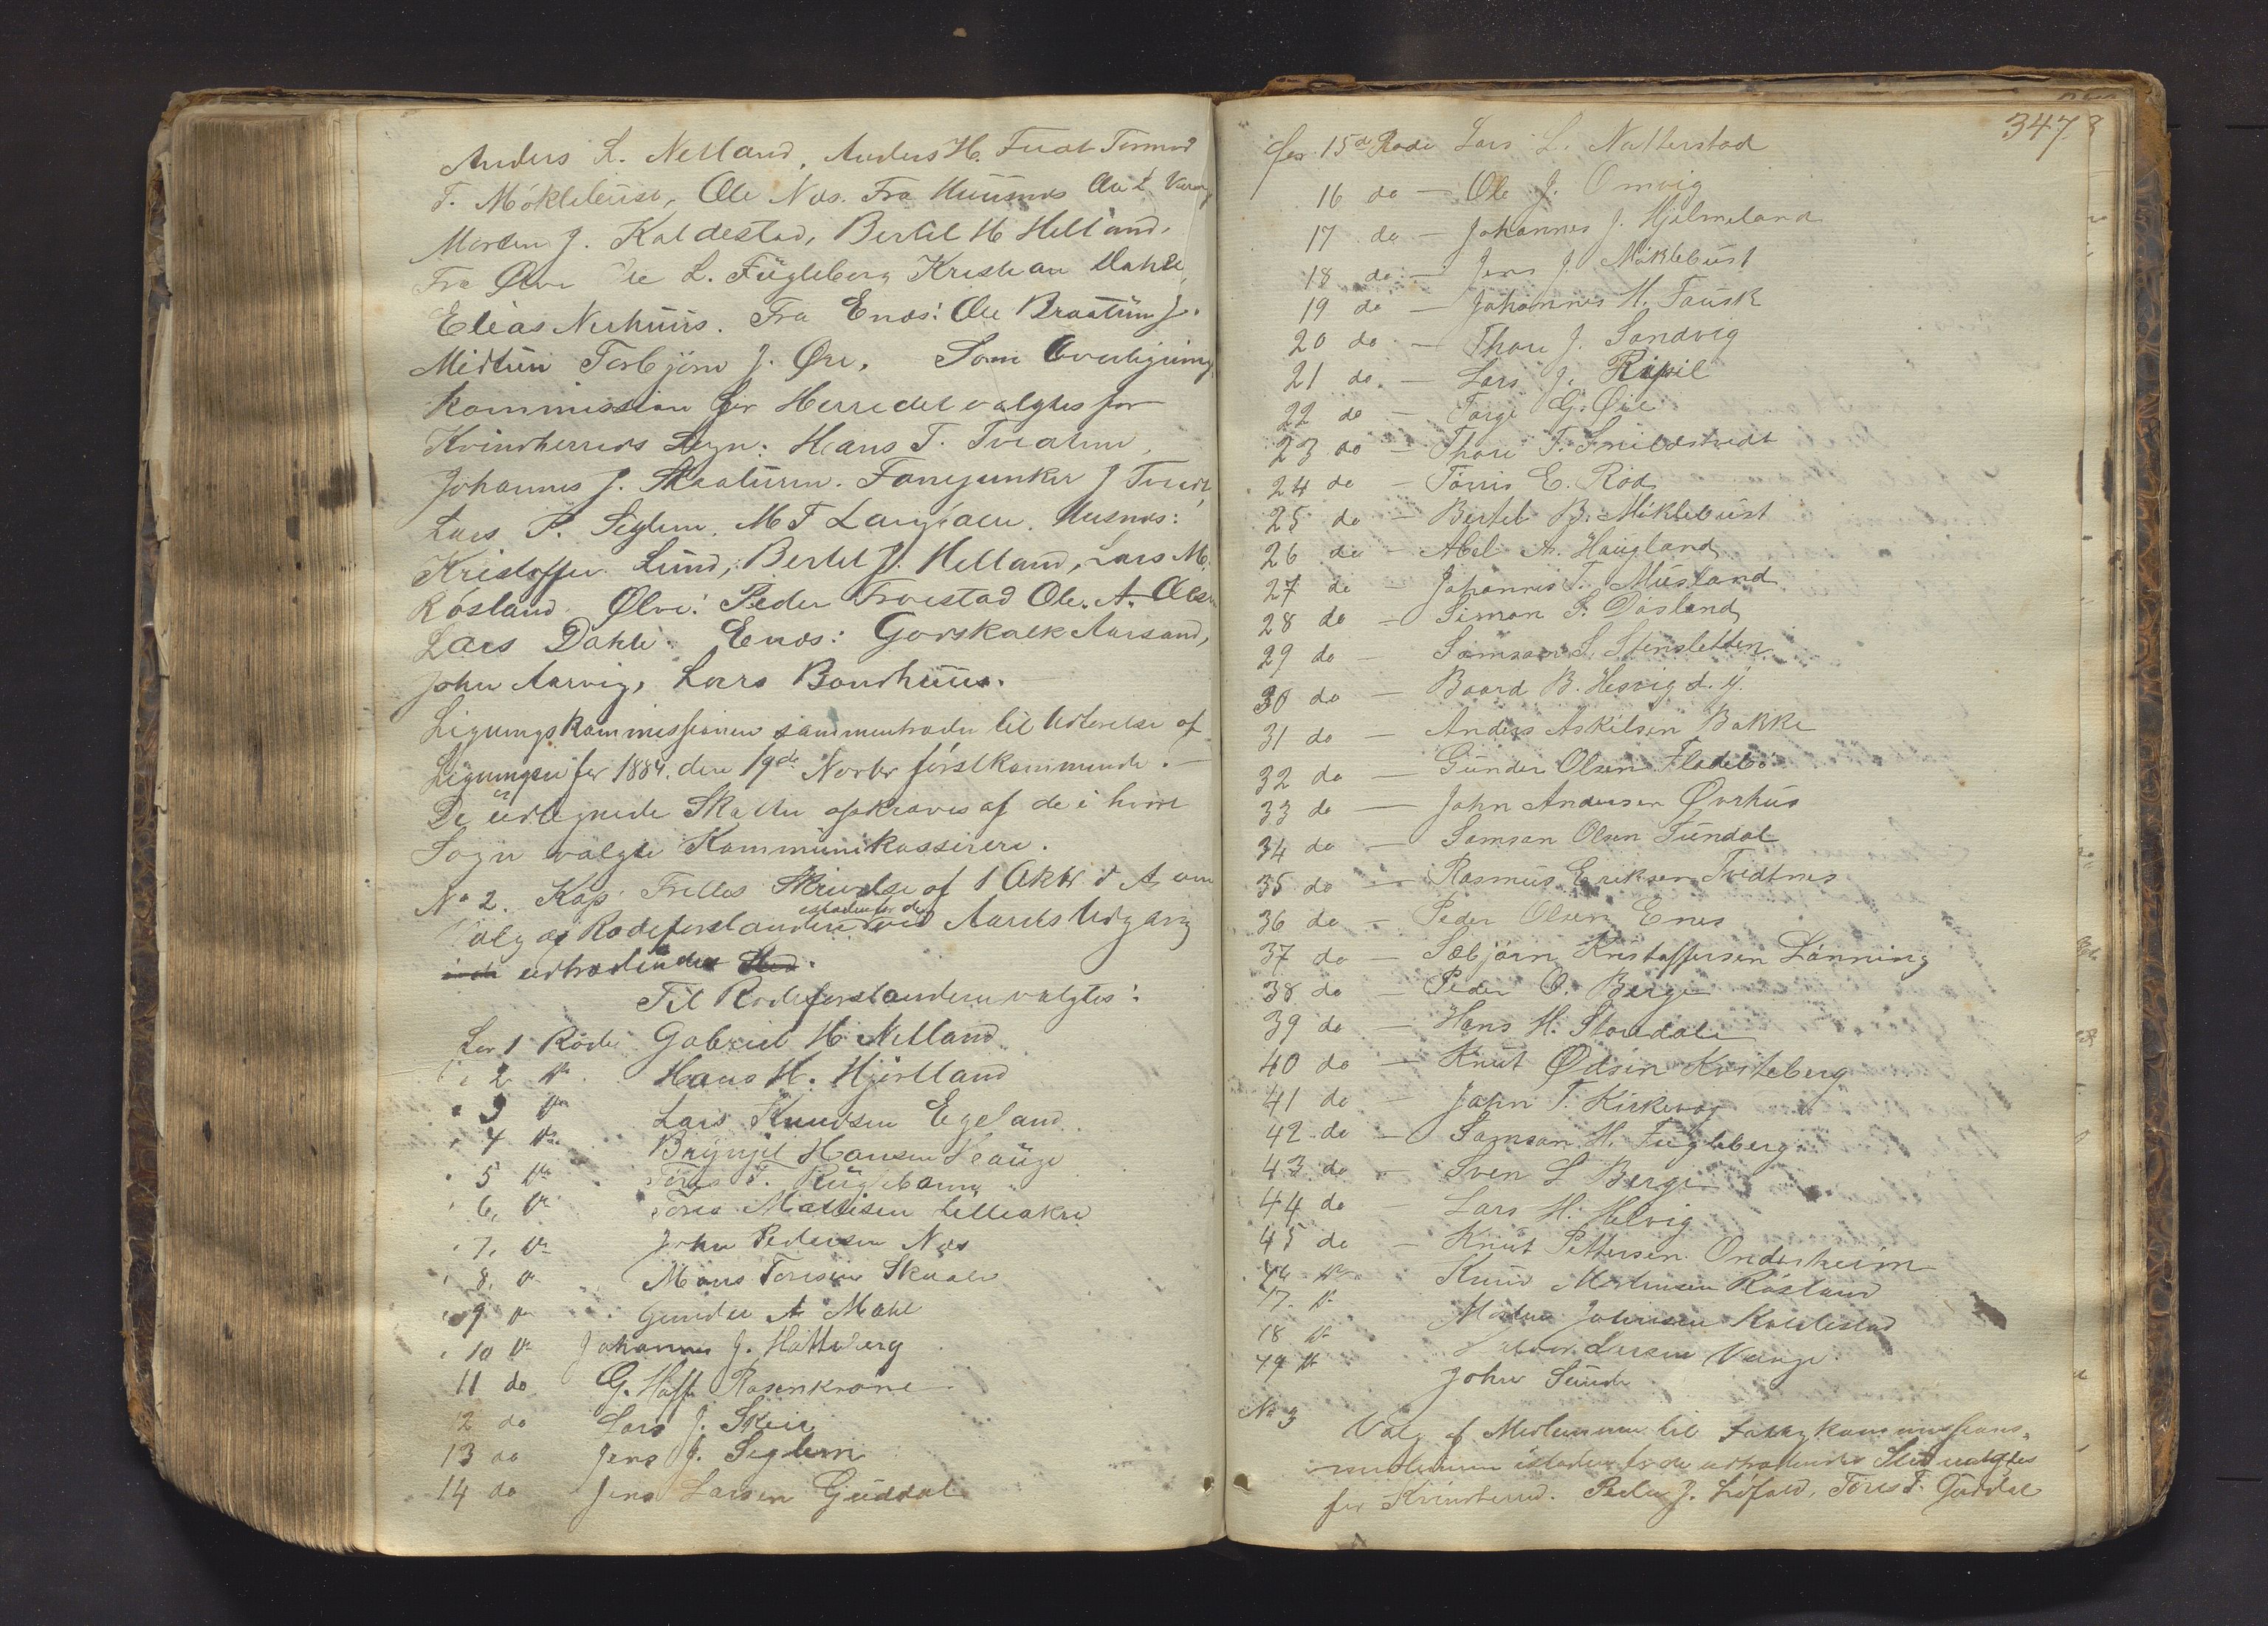 Anders L. Nelland, Anders H. Tuat Tormod
T. Möklebust, Ole Næs. Fra Huusnæs
Morten J. Kaldestad, Bertel H Helland,
Fra Ølve Ole L. Fugleberg Kristian Dahle,
Elias Nerhuus. Fra Enæs: Ole Braatun J.
Midtun Torbjörn J. Øre. Som Overligning
kommission for Herredet valgtes for
Kvindherreds Sogn: Hans T. Tveaten,
Johannes J. Skaaturun. Fanejunker J Tvedt
Lars P. Seglem. M T Langsaeu. Husnæs:
Kristoffer Lund, Bertel J. Helland, Lars M.
Rösland. Ølve: Peder Trovestad Ole. A.
Lars Dahle. Enæs: Gorskalk Aarsand,
John Aarvig, Lars Bondhuus.
Ligningskommissionen sammentræder til Udførelse af
Ligningen for 1884. den 19de Novbr förstkommende. —
De udlignede Skatter opkræves af de i hvert
Sogn valgte Kommunekasserere.
No 2. Kap. Frelles Skrivelse af 1 Oktbr d. A. om
Valg af Rodeforstandere istedenfor de ved Aarets Udgang
udtrædende.
Til Rodeforstandere valgtes:
For 1 Rode Gabriel H Nelland
" 2 do Hans H. Hjörtland
" 3 do Lars Knudsen Egeland
" 4 do Brynjel Hansen Hauge
" 5 do Töres T.
" 6, do Töres Mathisen Lilleakre
" 7, do John Pedersen Næs
" 8, do Mons Toresen Skaale
" 9 do Gunder A Mahl
" 10 do Johannes J. Hatteberg
11 do G. Hoff Rosenkrone
12 do Lars J. Skeie
13 do Jens J. Seglem
14 do Jens Larsen Guddal
347
for 15de Rode Lars L. Natterstad
16 do — Ole J. Omvig
17 do — Johannes J. Hjelmeland
18 do — Jens J. Möklebust
19 do — Johannes H. Tausk
20 do — Thore J. Sandvig
21 do. — Lars J. Ripil
22 do — Torge G. Øie
23 do — Thore T. Snildstvedt
24 do — Törris E. Röd
25 do — Bertel B. Möklebust
26 do — Abel A. Haugland
27 do — Johannes T. Musland
28 do — Simon S. Dösland
29 do — Samson S. Stensletten
30 do — Baard B. Hesvig d. y.
31 do — Anders Askilsen Bakke
32 do — Gunder Olsen Fladebö
33 do — John Andersen Øvrhus
34 do — Samson Olsen Tundal
35 do — Rasmus Eriksen Tvedtnes
36 do — Peder Olsen Enes
37 do — Sæbjörn Kristoffersen Lönning
38 do — Peder O. Berge
39 do — Hans H. Storedale
40 do — Knut Ødsin Kvitebergs
41 do — John T. Kirkevog
42 do — Samson H. Fugleberg
43 do — Sven L Berge
44 do — Lars H. Helvig
45 do — Knut Pettersen Onderheim
46 do Knud Mortensen Rösland
47. do Morten Johnsen Kaldestad
48 do Larsen Vange
49 do John Sunde
No 3 Valg af Medlemmer til Fattigkommissions-
medlemmer istedenfor de udtrædendes Sted valgtes
for Kvindherred. Peder J. Löfald, Töres T. Guddal